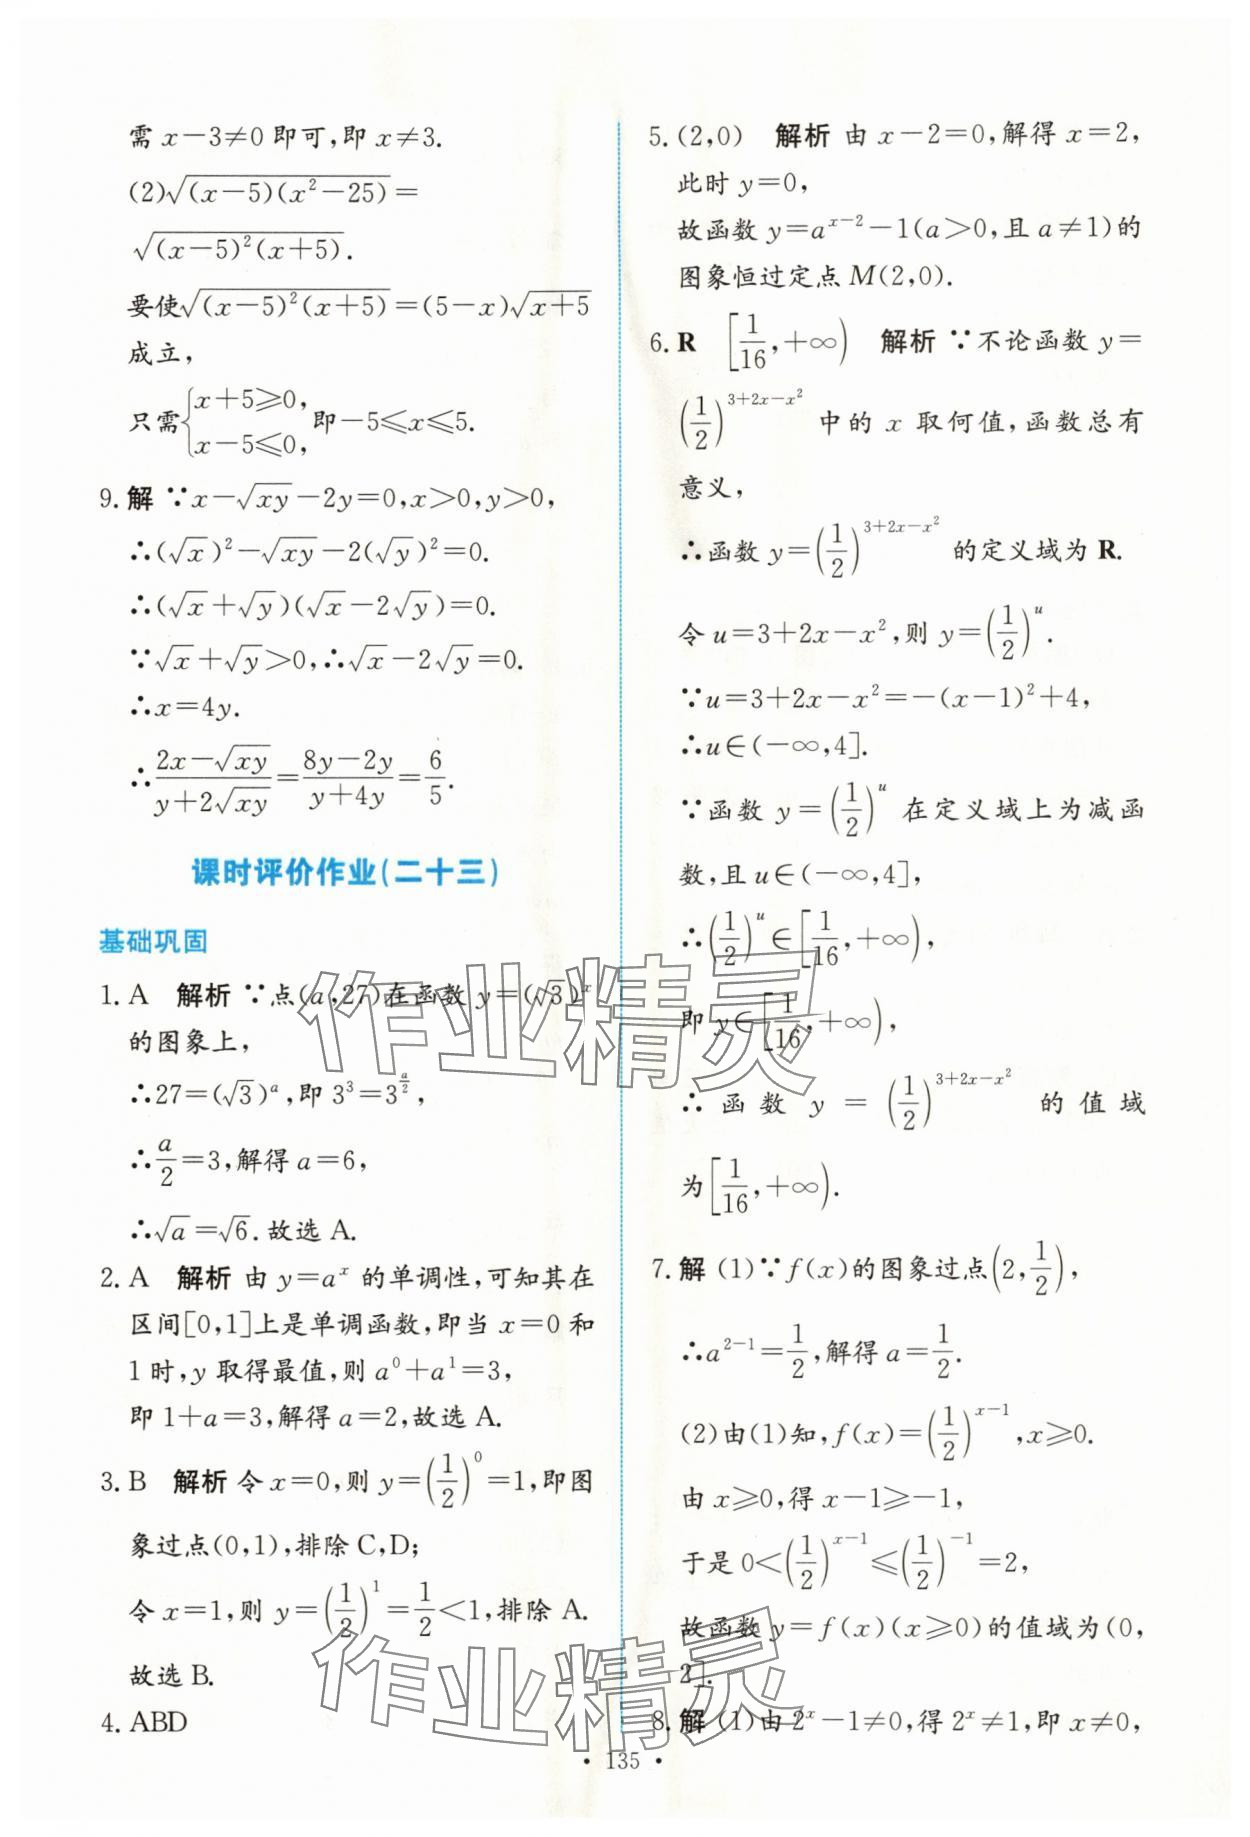 需 x－3≠0 即可,即 x≠3.
(2)√((x－5)(x²－25))＝
√((x－5)²(x＋5)).
要使√((x－5)²(x＋5))＝(5－x)√(x＋5)
成立,
只需{x＋5≥0, x－5≤0, 即－5≤x≤5.
9. 解 ∵x－√(xy)－2y＝0,x＞0,y＞0,
∴(√x)²－√(xy)－2(√y)²＝0.
∴(√x＋√y)(√x－2√y)＝0.
∵√x＋√y＞0,∴√x－2√y＝0.
∴x＝4y.
∴(2x－√(xy))/(y＋2√(xy))＝(8y－2y)/(y＋4y)＝6/5.
课时评价作业(二十三)
基础巩固
1. A 解析 ∵点(a,27)在函数 y＝(√3)^x
的图象上,
∴27＝(√3)^a,即 3³＝3^(a/2),
∴a/2＝3,解得 a＝6,
∴√a＝√6.故选 A.
2. A 解析 由 y＝a^x 的单调性,可知其在
区间[0,1]上是单调函数,即当 x＝0 和
1 时,y 取得最值,则 a⁰＋a¹＝3,
即 1＋a＝3,解得 a＝2,故选 A.
3. B 解析 令 x＝0,则 y＝(1/2)⁰＝1,即图
象过点(0,1),排除 C,D;
令 x＝1,则 y＝(1/2)¹＝1/2＜1,排除 A.
故选 B.
4. ABD
5. (2,0) 解析 由 x－2＝0,解得 x＝2,
此时 y＝0,
故函数 y＝a^(x－2)－1(a＞0,且 a≠1)的
图象恒过定点 M(2,0).
6. R [1/16,＋∞) 解析 ∵不论函数 y＝
(1/2)^(3＋2x－x²) 中的 x 取何值,函数总有
意义,
∴函数 y＝(1/2)^(3＋2x－x²) 的定义域为 R.
令 u＝3＋2x－x²,则 y＝(1/2)^u.
∵u＝3＋2x－x²＝－(x－1)²＋4,
∴u∈(－∞,4].
∵函数 y＝(1/2)^u 在定义域上为减函
数,且 u∈(－∞,4],
∴(1/2)^u∈[1/16,＋∞),
即 y∈[1/16,＋∞),
∴函数 y＝(1/2)^(3＋2x－x²) 的值域
为[1/16,＋∞).
7. 解 (1)∵f(x)的图象过点(2,1/2),
∴a^(2－1)＝1/2,解得 a＝1/2.
(2)由(1)知,f(x)＝(1/2)^(x－1),x≥0.
由 x≥0,得 x－1≥－1,
于是 0＜(1/2)^(x－1)≤(1/2)^(－1)＝2,
故函数 y＝f(x)(x≥0)的值域为(0,
2].
8. 解 (1)由 2^x－1≠0,得 2^x≠1,即 x≠0,
• 135 •
作业精灵
作业精灵